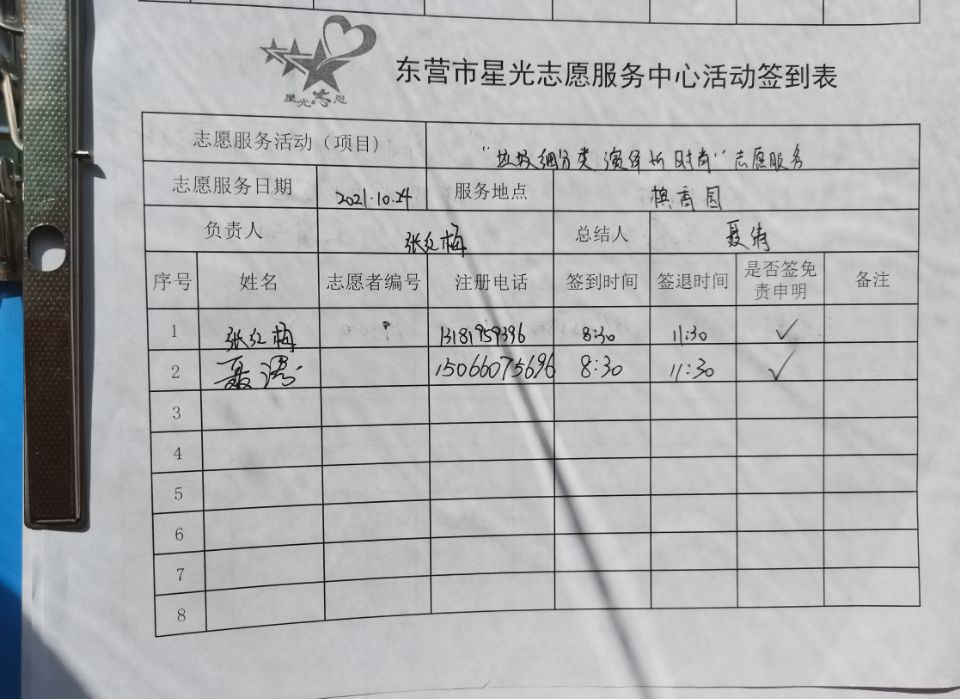 星光志愿
东营市星光志愿服务中心活动签到表
志愿服务活动（项目） "垃圾细分类 演绎新时尚"志愿服务
志愿服务日期 2021.10.24 服务地点
负责人 张红梅 总结人 聂倩
序号 姓名 志愿者编号 注册电话 签到时间 签退时间 是否签免责申明 备注
1 张红梅 13181959396 8:30 11:30 ✓
2 聂 15066075696 8:30 11:30 ✓
3
4
5
6
7
8